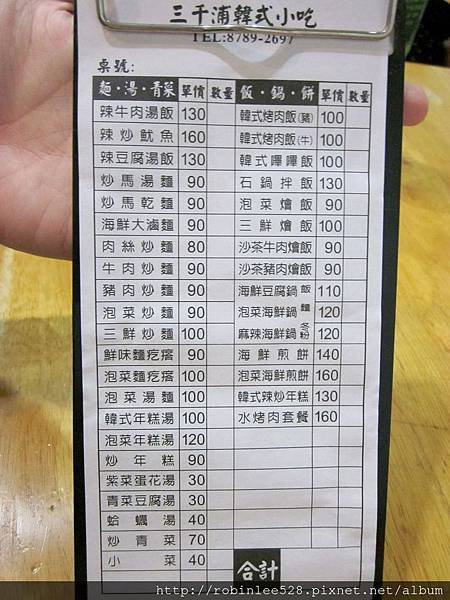 三千浦韓式小吃
TEL:8789-2697
桌號:
麵・湯・青菜 單價 數量
辣牛肉湯飯 130
辣炒魷魚 160
辣豆腐湯飯 130
炒馬湯麵 90
炒馬乾麵 90
海鮮大滷麵 90
肉絲炒麵 80
牛肉炒麵 90
豬肉炒麵 90
泡菜炒麵 90
三鮮炒麵 100
鮮味麵疙瘩 90
泡菜麵疙瘩 100
泡菜湯麵 100
韓式年糕湯 100
泡菜年糕湯 120
炒年糕 90
紫菜蛋花湯 30
青菜豆腐湯 30
蛤蠣湯 40
炒青菜 70
小菜 40
飯・鍋・餅 單價 數量
韓式烤肉飯(豬) 100
韓式烤肉飯(牛) 100
韓式嗶嗶飯 100
石鍋拌飯 130
泡菜燴飯 90
三鮮燴飯 100
沙茶牛肉燴飯 90
沙茶豬肉燴飯 90
海鮮豆腐鍋 飯 110
泡菜海鮮鍋 麵 120
麻辣海鮮鍋 冬粉 120
海鮮煎餅 140
泡菜海鮮煎餅 160
韓式辣炒年糕 130
水烤肉套餐 160
合計
http://robinlee528.pixnet.net/album